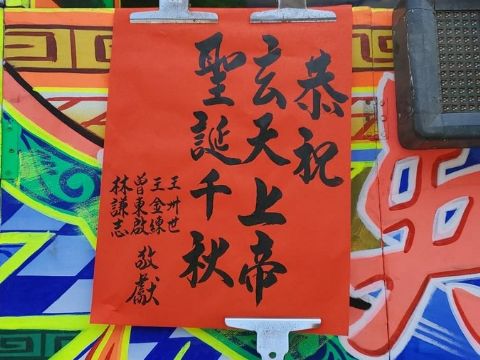 恭祝
玄天上帝
聖誕千秋
王卅世
王金練
曾東啟
林謙志
敬獻